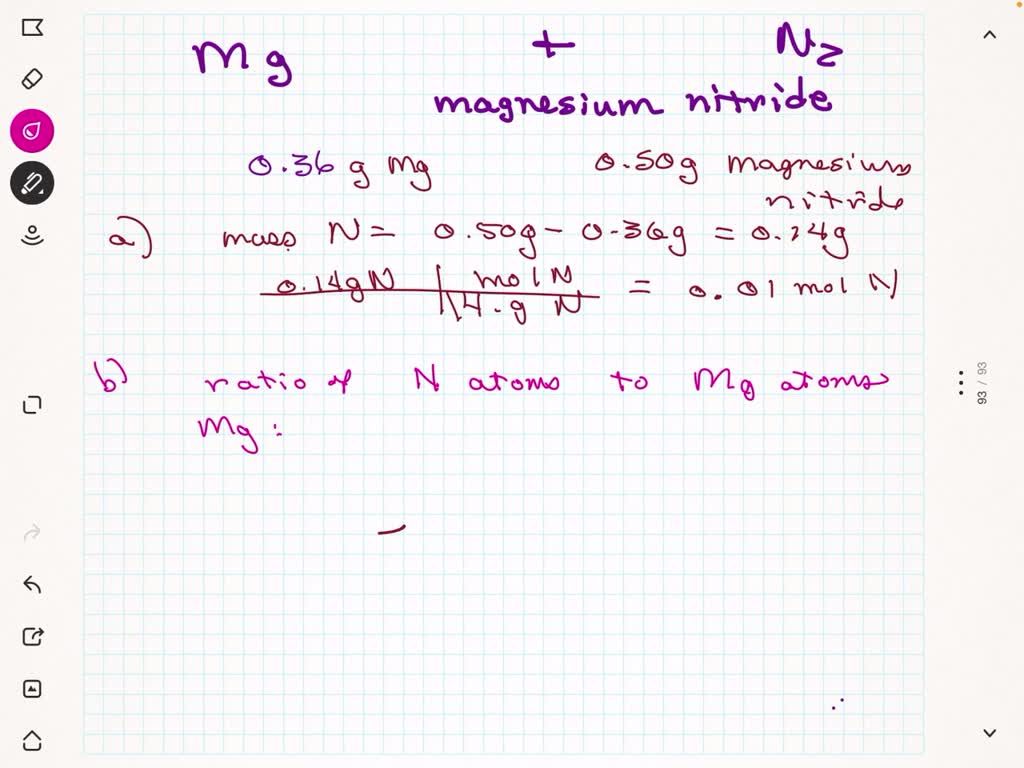 Mg + N2
magnesium nitride
0.36 g Mg 0.50g magnesium
nitride
a) mass N = 0.50g - 0.36g = 0.14g
0.14gN | mol N = 0.01 mol N
14.g N
b) ratio of N atoms to Mg atoms
Mg :
93 / 93